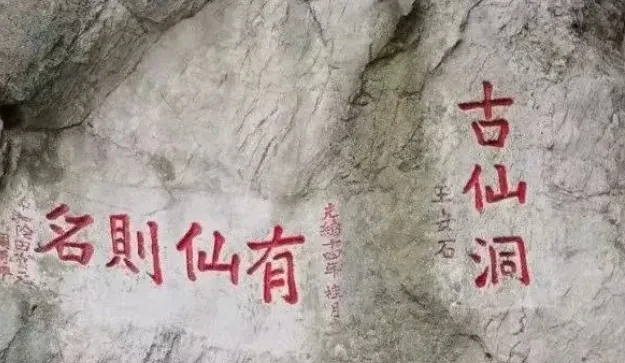 古仙洞
王安石
光緒十四年 桂月
有仙則名